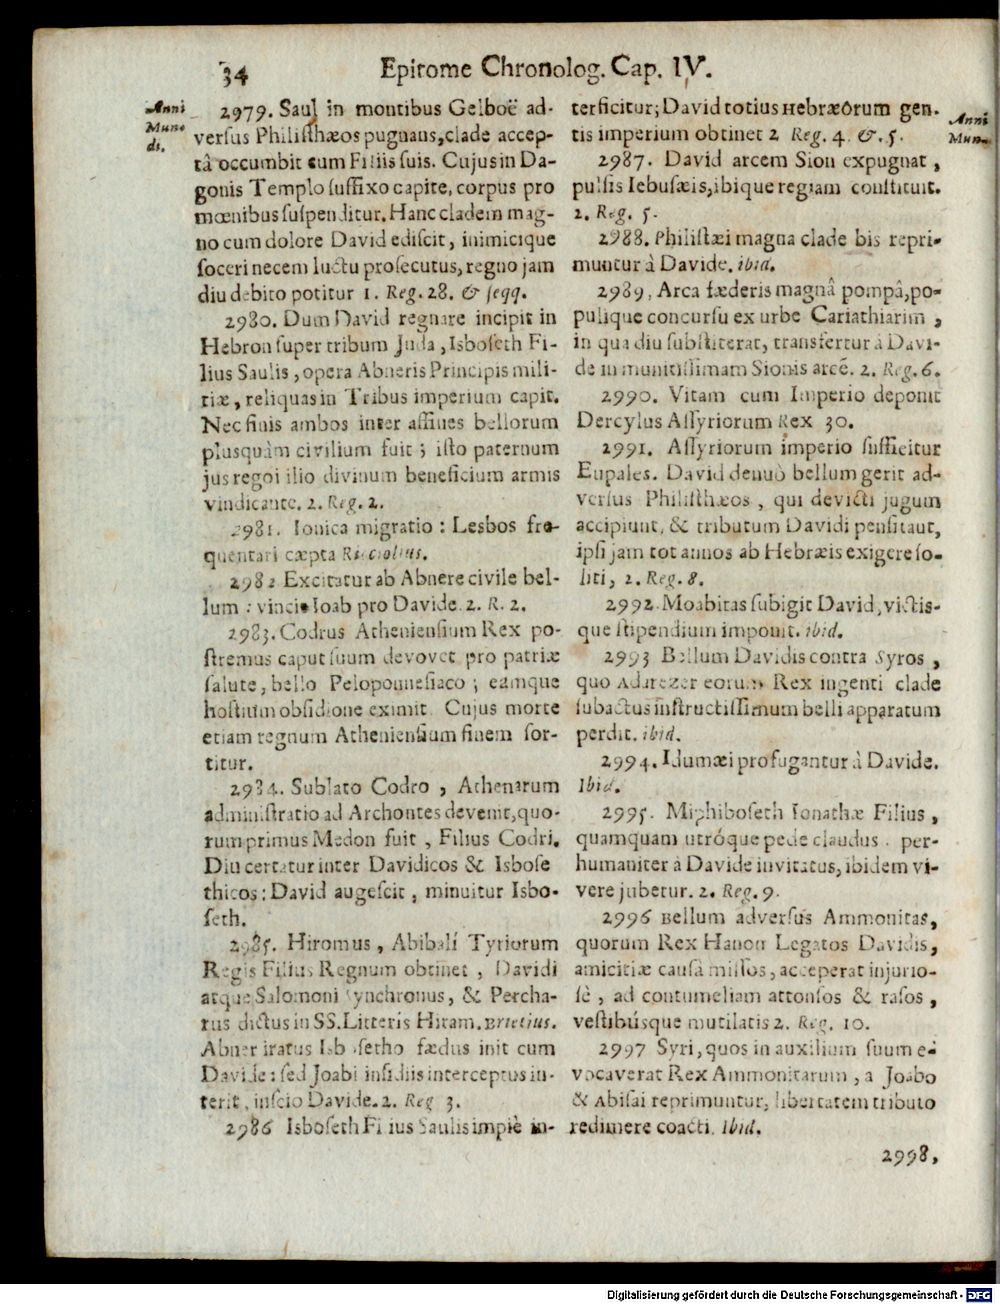 34 Epitome Chronolog. Cap. IV.
Anni
Mun-
di.
2979. Saul in montibus Gelboë ad-
versus Philisthæos pugnans, clade accep-
tâ occumbit cum Filiis suis. Cujus in Da-
gonis Templo suffixo capite, corpus pro
mœnibus suspenditur. Hanc cladem mag-
no cum dolore David ediscit, inimicique
soceri necem luctu prosecutus, regno jam
diu debito potitur 1. Reg. 28. & seqq.
2980. Dum David regnare incipit in
Hebron super tribum Juda, Isboseth Fi-
lius Saulis, opera Abneris Principis mili-
tiæ, reliquas in Tribus imperium capit.
Nec finis ambos inter affines bellorum
plusquàm civilium fuit; isto paternum
jus regni illo divinum beneficium armis
vindicante. 2. Reg. 2.
2981. Ionica migratio: Lesbos fre-
quentari cæpta Ricciolius.
2982 Excitatur ab Abnere civile bel-
lum: vincit Joab pro Davide. 2. R. 2.
2983. Codrus Atheniensium Rex po-
stremus caput suum devovet pro patriæ
salute, bello Peloponnesiaco; eamque
hostium obsidione eximit. Cujus morte
etiam regnum Atheniensium finem sor-
titur.
2984. Sublato Codro, Athenarum
administratio ad Archontes devenit, quo-
rum primus Medon fuit, Filius Codri.
Diu certatur inter Davidicos & Isbose
thicos: David augescit, minuitur Isbo-
seth.
2985. Hiromus, Abibali Tyriorum
Regis Filius Regnum obtinet, Davidi
atque Salomoni synchronus, & Percha-
rus dictus in SS. Litteris Hiram. Brietius.
Abner iratus Isbosetho fædus init cum
Davide: sed Joabi insidiis interceptus in-
terit, inscio Davide. 2. Reg 3.
2986 Isboseth Filius Saulis impiè in-
Anni
Mun-
terficitur; David totius Hebræorum gen-
tis imperium obtinet 2 Reg. 4. &. 5.
2987. David arcem Sion expugnat,
pulsis Iebusæis, ibique regiam constituit.
2. Reg. 5.
2988. Philistæi magna clade bis repri-
muntur à Davide. ibid.
2989. Arca fæderis magnâ pompâ, po-
pulique concursu ex urbe Cariathiarim,
in qua diu substiterat, transfertur à Davi-
de in munitissimam Sionis arcē. 2. Reg. 6.
2990. Vitam cum Imperio deponit
Dercylus Assyriorum Rex 30.
2991. Assyriorum imperio sufficitur
Eupales. David denuò bellum gerit ad-
versus Philisthæos, qui devicti jugum
accipiunt, & tributum Davidi pensitant,
ipsi jam tot annos ab Hebræis exigere so-
liti, 2. Reg. 8.
2992. Moabitas subigit David, victis-
que stipendium imponit. ibid.
2993 Bellum Davidis contra Syros,
quo Adarezer eorum Rex ingenti clade
subactus instructissimum belli apparatum
perdit. ibid.
2994. Idumæi profugantur à Davide.
Ibid.
2995. Miphiboseth Ionathæ Filius,
quamquam utróque pede claudus. per-
humaniter à Davide invitatus, ibidem vi-
vere jubetur. 2. Reg. 9.
2996 Bellum adversus Ammonitas,
quorum Rex Hanon Legatos Davidis,
amicitiæ causâ missos, acceperat injurio-
sè, ad contumeliam attonsos & rasos,
vestibúsque mutilatis 2. Reg. 10.
2997 Syri, quos in auxilium suum e-
vocaverat Rex Ammonitarum, a Joabo
& Abisai reprimuntur, libertatem tributo
redimere coacti. Ibid.
2998,
Digitalisierung gefördert durch die Deutsche Forschungsgemeinschaft - DFG